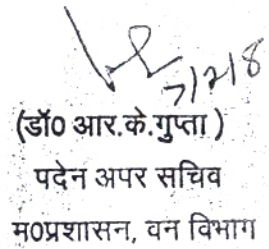 7/2/8
(डॉ0 आर.के.गुप्ता )
पदेन अपर सचिव
म0प्रशासन, वन विभाग